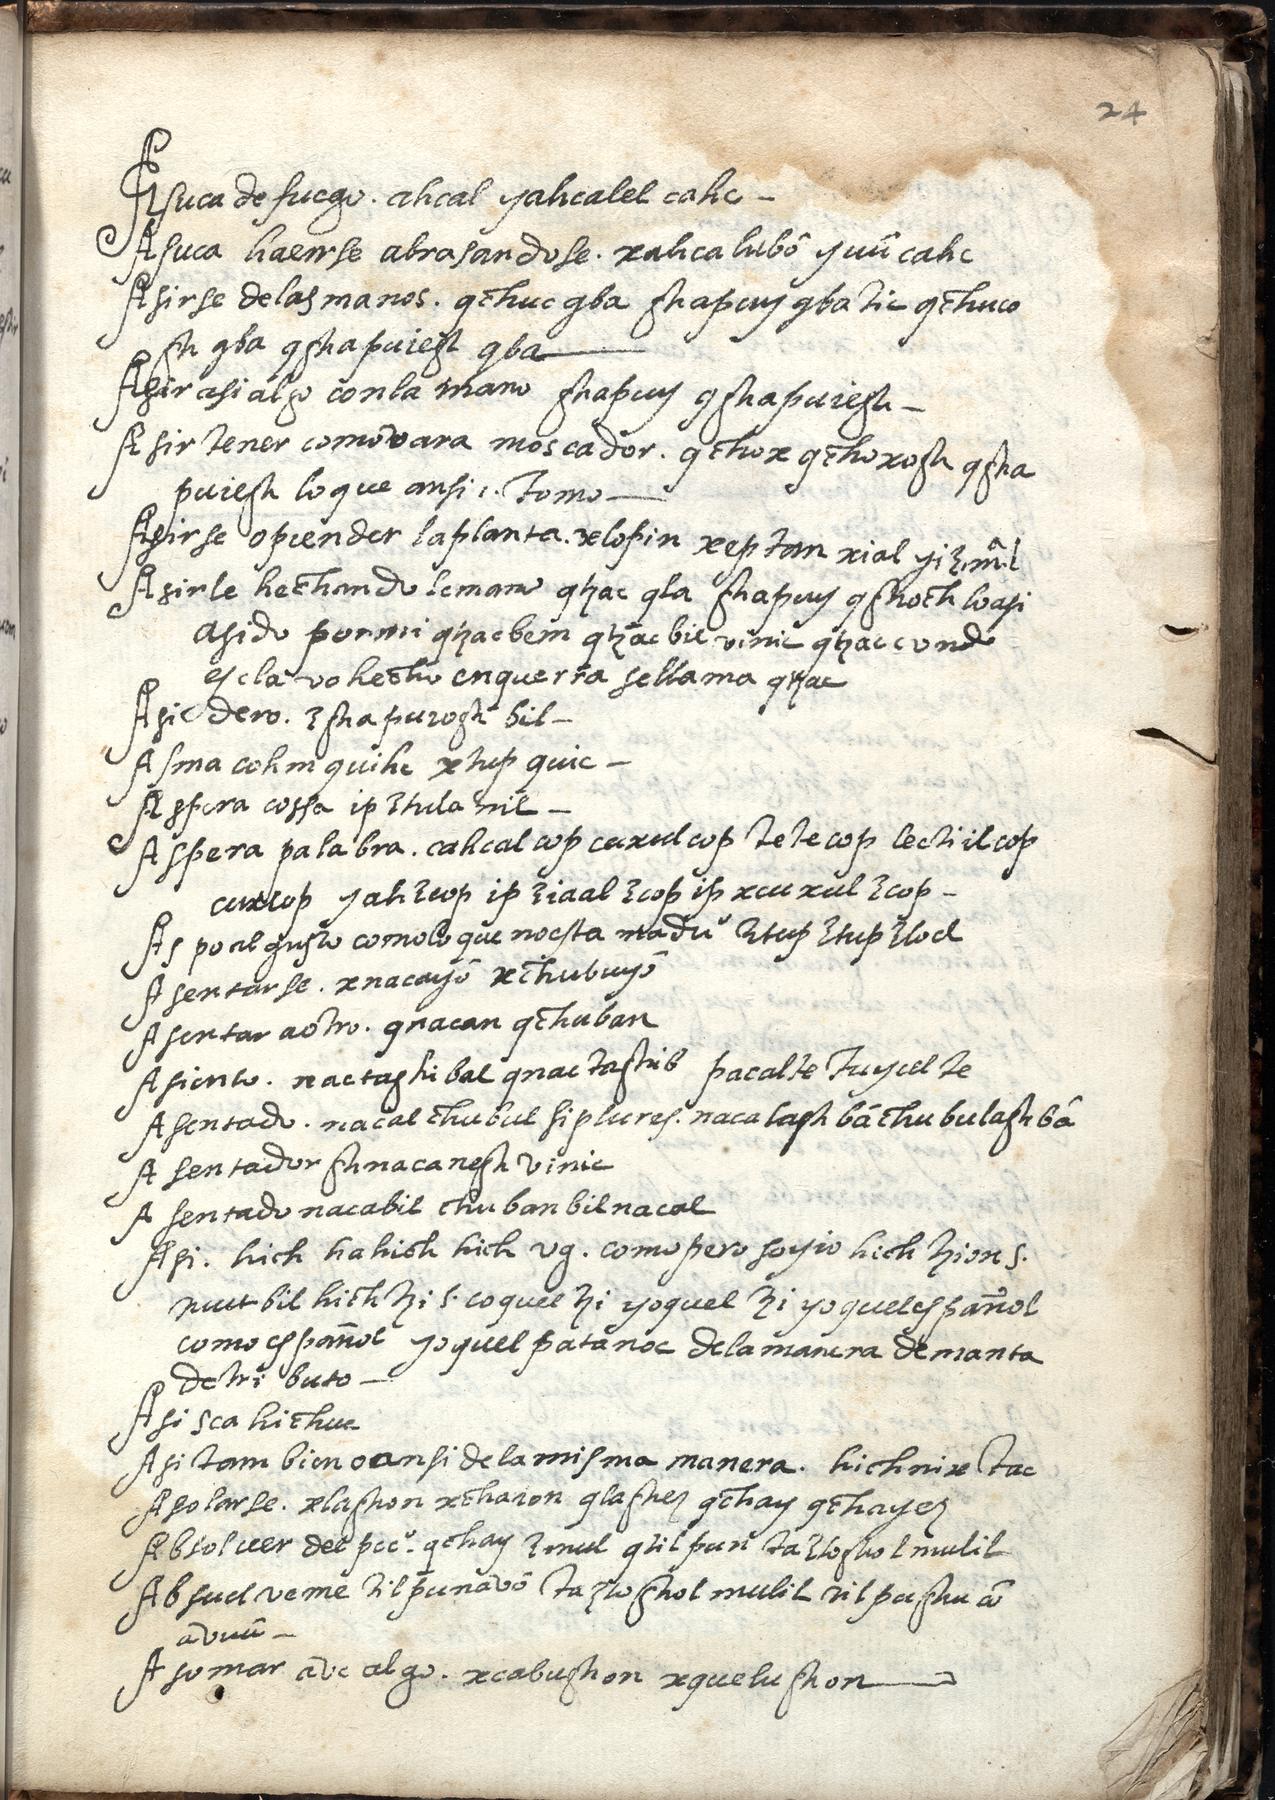 24
A
Asuca de fuego. ahcal yahcalel cahc –
Asuca haerse abrasandose. xahcalubô yuū cahc
Asirse delas manos. qchuc qba ghapuy qbatic qchuco
gh qba qghapuiegh qba
Asir asi algo conla mano ghapuy qghapuiegh –
Asir tener como vara moscador. qchox qchoxogh qgha
puiegh loque ansi .i. tomo
Asirse oprender laplanta. xlopin xeptan xial
Asirle hechando lemano qꜩac qla ghapuy qghoch loasi
asido pormi qꜩacbem qꜩacbil vinic qꜩac cundo
esclavo hecho enguerra sellama qꜩac
Asidero. ghapuiogh bil –
Asma cohm quihc xtup quic –
Aspera cossa ip ꜫtulanil –
Aspera palabra. cahcalcop cuxulcop tetecop lectiilcop
cuxcop yahꜫcop ip ꜫiaal ꜫcop ip xcuxul ꜫcop –
Aspo al gusto comolo que noesta madu° ꜫtup ꜫtup ꜫlocl
Asentarse. xnacayô xchubuyô
Asentar aotro. qnacan qchuban
Asiento. nactaghibal qnactaghib pacalte tuyulte
Asentado. nacal chubul siplures. nacalagh bâ chubulagh bâ
Asentador ghnacanegh vinic
Asentado nacabil chubanbilnacal
Asi. hich hahich hich vg. como pero soyio hich ꜩion s.
nuutbil hich ꜩi s. coquel ꜩi yoquel ꜩi yoquelespañol
como español yoquel patanoc delamanera demanta
detributo –
Asi sca hichuc
Asi tambien oansi dela misma manera. hichnix tac
Asolarse. xlaghon xchaion qlaghes qchay qchayes
Absoluer del pcc°. qchay ꜫmul qtilpun taꜫloghol mulil
Absuelveme tilpunavô taꜫloghol mulil tilpughu
avuū –
Asomar ave algo. xcabughon xquelughon